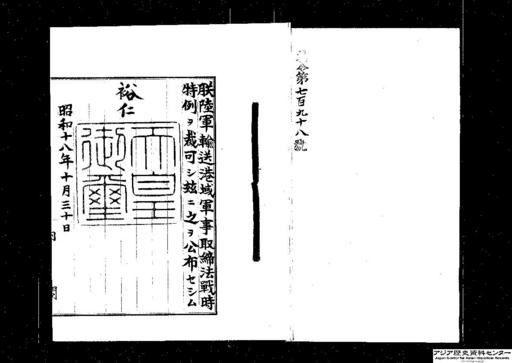 令第七百九十八號
朕陸軍輸送港域軍事取締法戰時
特例ヲ裁可シ茲ニ之ヲ公布セシム
裕仁
天皇
御璽
昭和十八年十月三十日
内閣
アジア歴史資料センター
Japan Center for Asian Historical Records